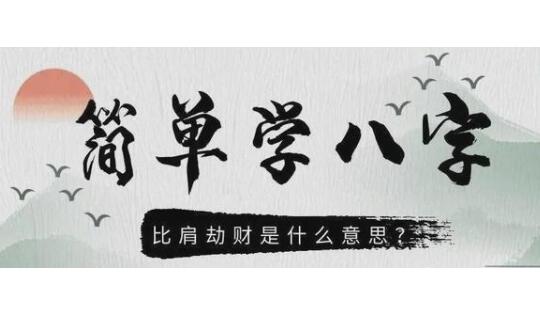 简单学八字
比肩劫财是什么意思?